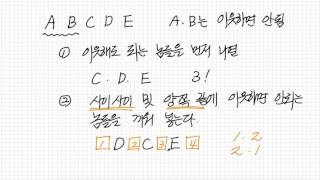 A B C D E A.B는 이웃하면 안됨
① 이웃해도 되는 놈들을 먼저 나열
C . D . E 3!
② 사이사이 및 양쪽 끝에 이웃하면 안되는
놈들을 끼워 넣는다.
1 D 2 C 3 E 4 1 . 2
2 . 1